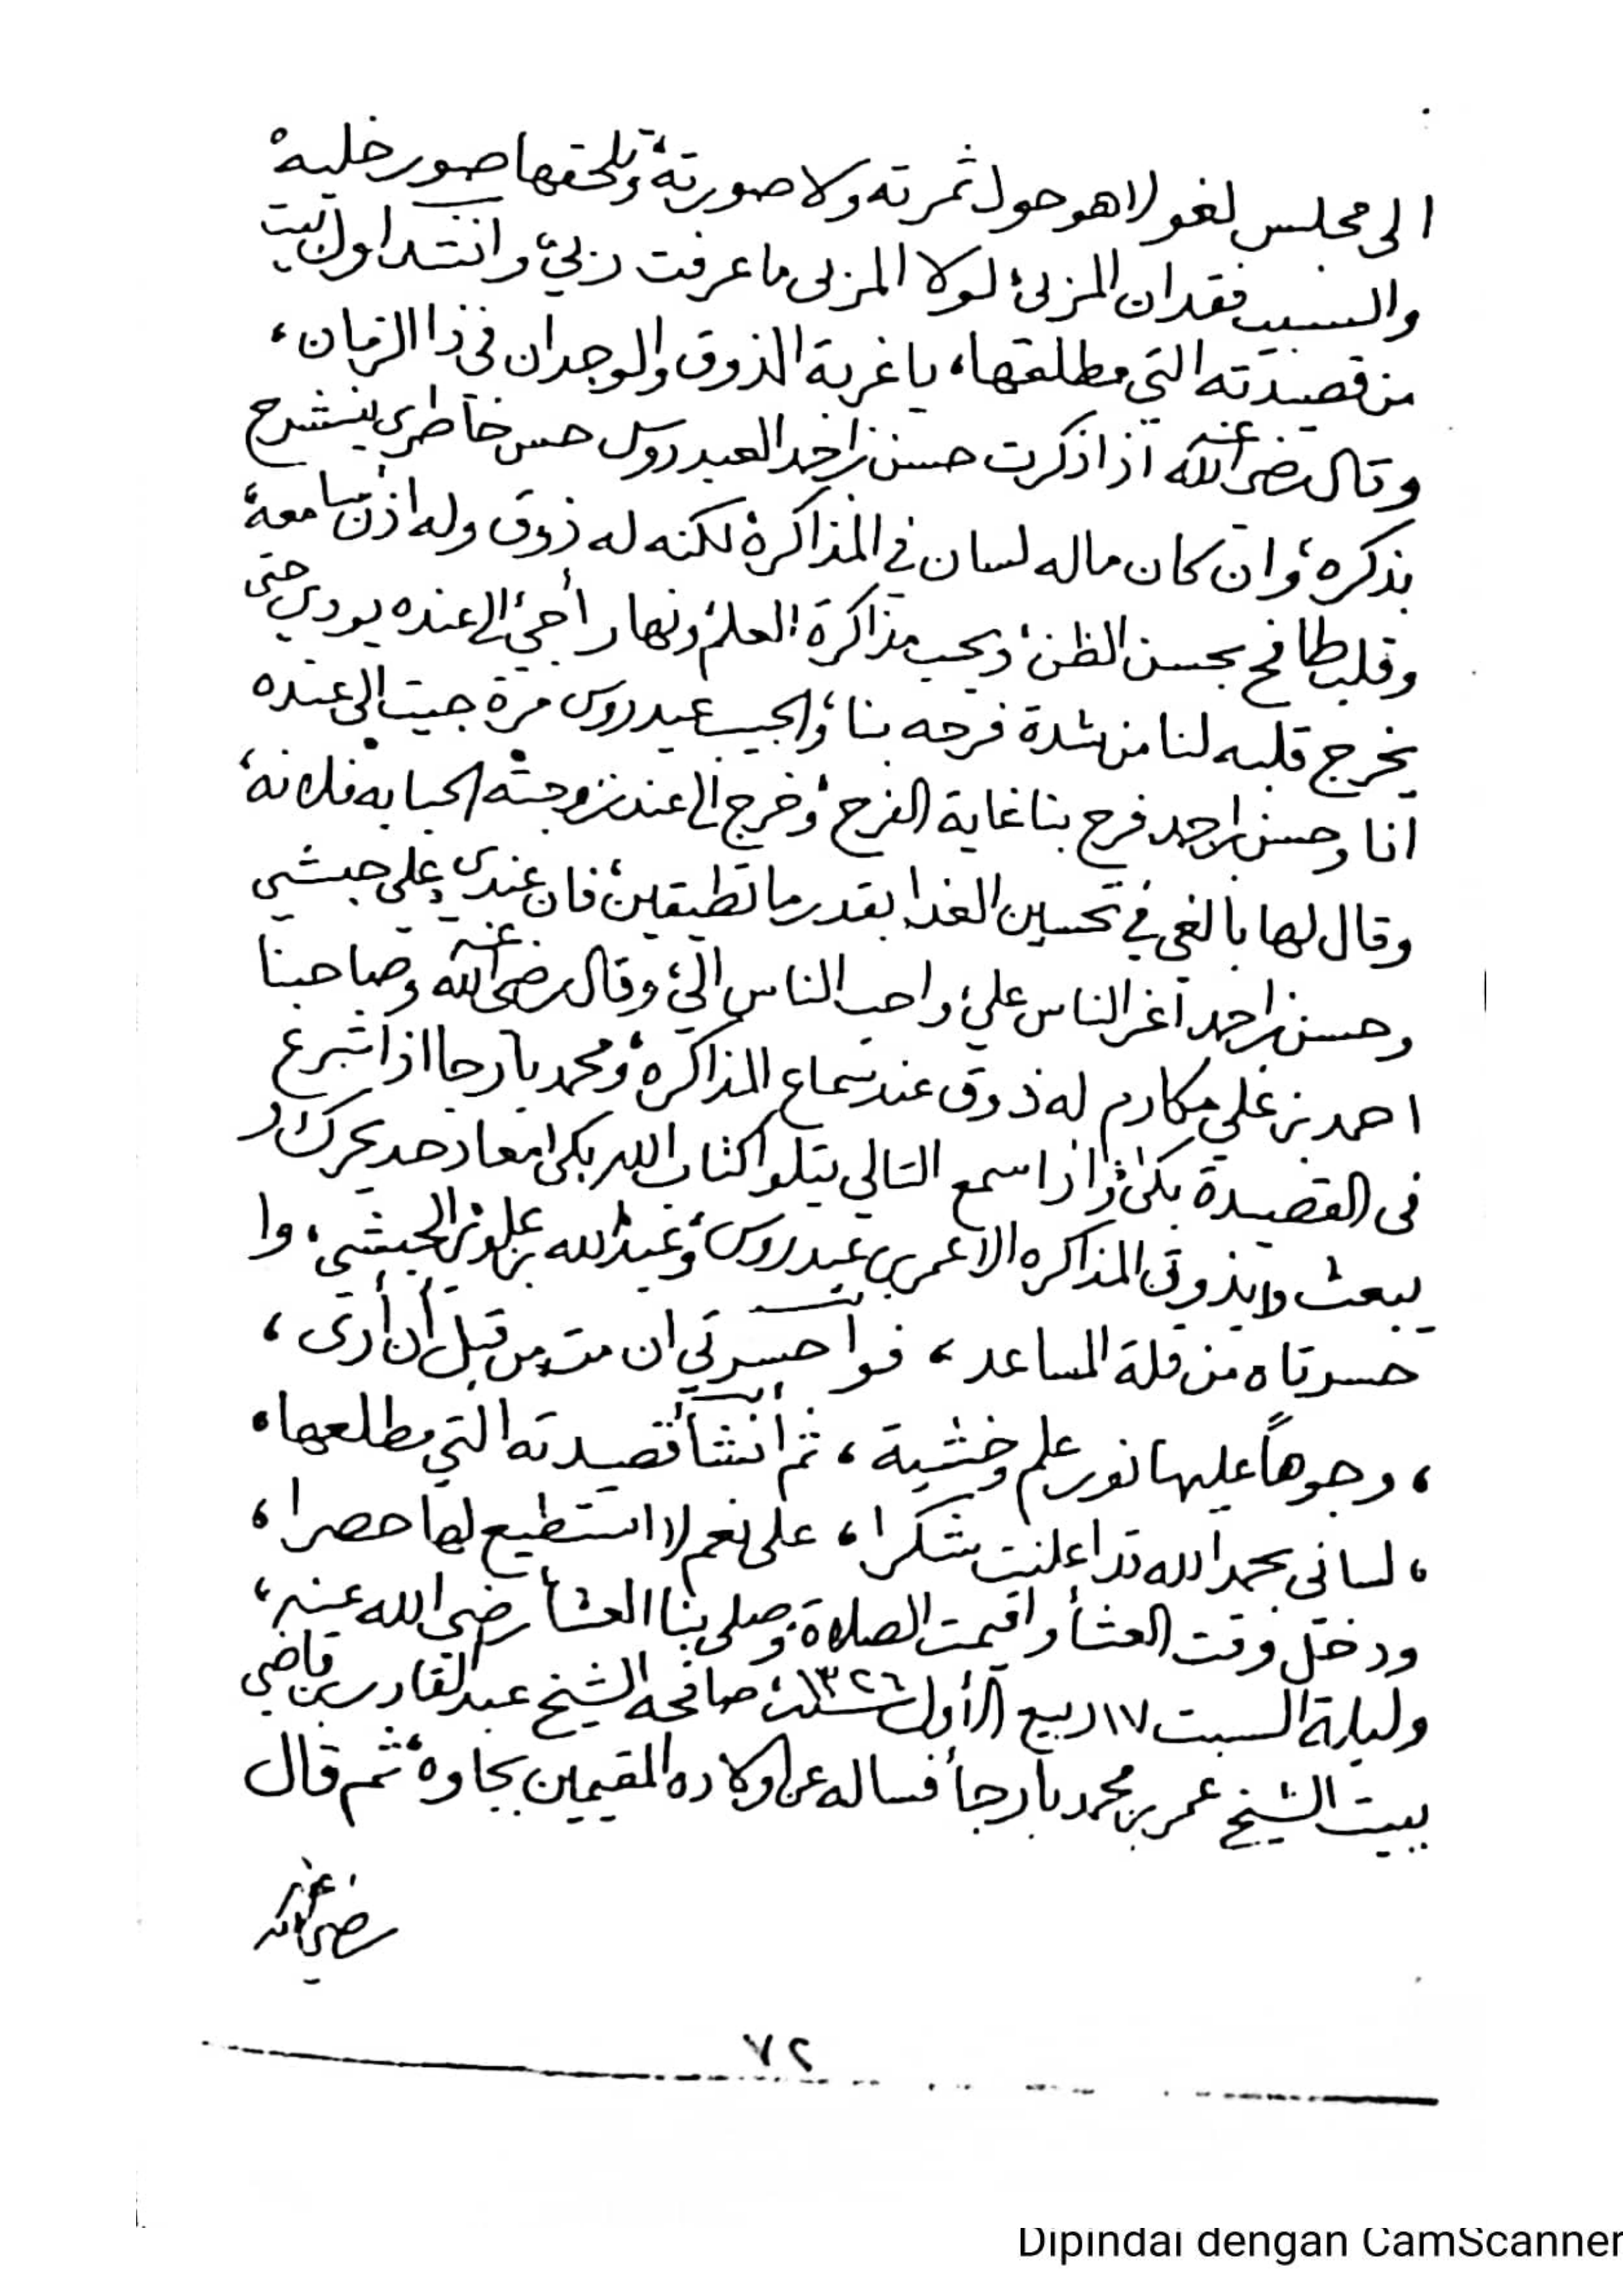 الى مجلس لغو لاهو حول ثمرته ولا صورته، وتلحقها صور خليه
والسبب فقدان المزلى، لولا المربى ما عرفت ربي، وانشد اول بيت
من قصيدته التي مطلعها، يا غربة الذوق والوجدان في ذا الزمان،
وقال رضي الله عنه اذا ذكرت حسن بن احمد العيدروس حس خاطري ينشرح
بذكره، وان كان ماله لسان في المذاكرة لكنه له ذوق وله اذن سامعة،
وقلب طافح بحسن الظن، ويحب مذاكرة العلم، ونهار أجي الى عنده يودي حتى
يخرج قلبه لنا من شدة فرحه بنا، والحبيب عيدروس مرة جيت الى عنده
انا وحسن بن احمد فرح بنا غاية الفرح، وخرج الى عند زوجته الحبابه فلانه،
وقال لها بالغي في تحسين الغدا بقدر ما تطيقين، فان عندي علي حبشي
وحسن بن احمد اغر الناس علي، واحب الناس الي، وقال رضي الله عنه وصاحبنا
احمد بن علي مكارم له ذوق عند سماع المذاكرة، ومحمد بارجا اذا شرع
في القصيدة بكى، واذا سمع التالي يتلو كتاب الله بكى، امعاد حد يحرك ولا
يبعث ولا يذوق المذاكره الا عمري عيدروس، وعبد الله بن علوي الحبشي، وا
حسرتاه من قلة المساعد، فوا حسرتي ان مت من قبل أن أرى،
، وجوهاً عليها نور علم وخشية، ثم أنشأ قصيدته التي مطلعها،
، لساني بحمد الله قد اعلنت شكرا، على نعم لا استطيع لها حصرا،
ودخل وقت العشأ واقيمت الصلاة، وصلى بنا العشأ رضي الله عنه،
وليلة السبت ١٧ ربيع الأول سنة ١٣٢٦، صافحه الشيخ عبد القادر بن قاضي
ببيت الشيخ عمر بن محمد بارجأ فساله عن اولاده المقيمين بجاوة، ثم قال
رضي الله عنه
٧٢
Dipindai dengan CamScanner